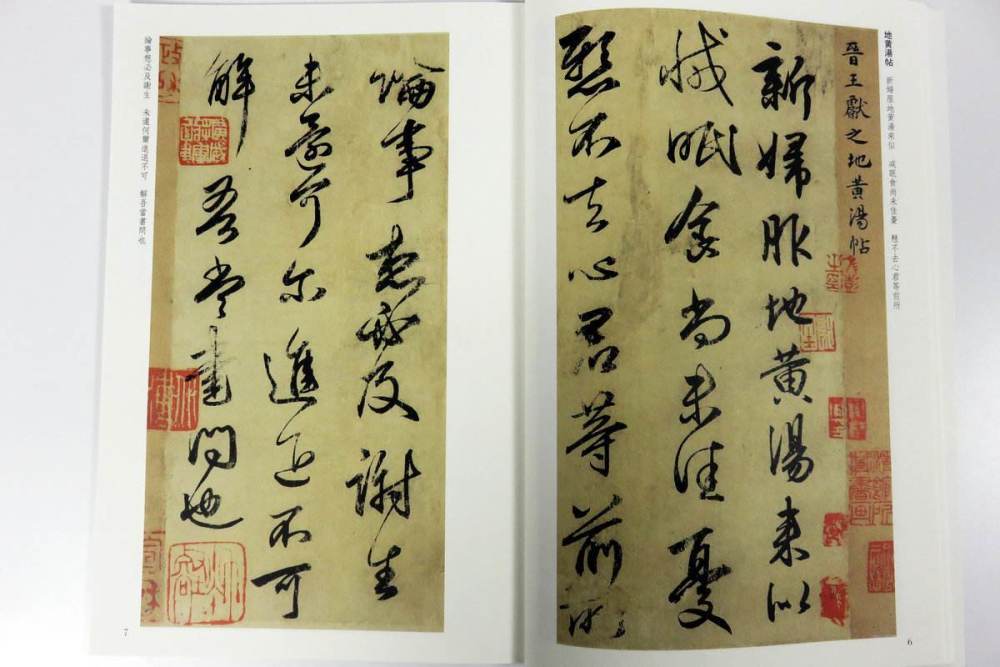 地黄湯帖
新婦服地黄湯來似 減眠食尚未佳憂 懸不去心君等前所
晉王獻之地黄湯帖
新婦服地黄湯来似
減眠食尚未佳憂
懸不去心君等前所
6
論事想必及謝生
未還何爾進退不可
解吾當書問也
論事想必及謝生 未還何爾進退不可 解吾當書問也
7